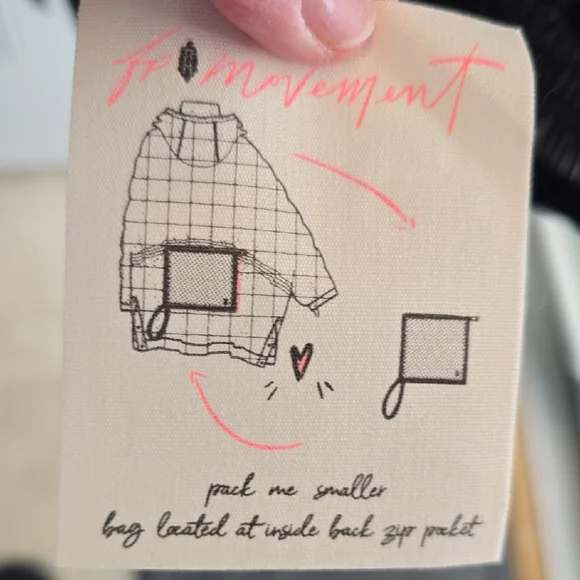 movement
pack me smaller
bag located at inside back zip pocket